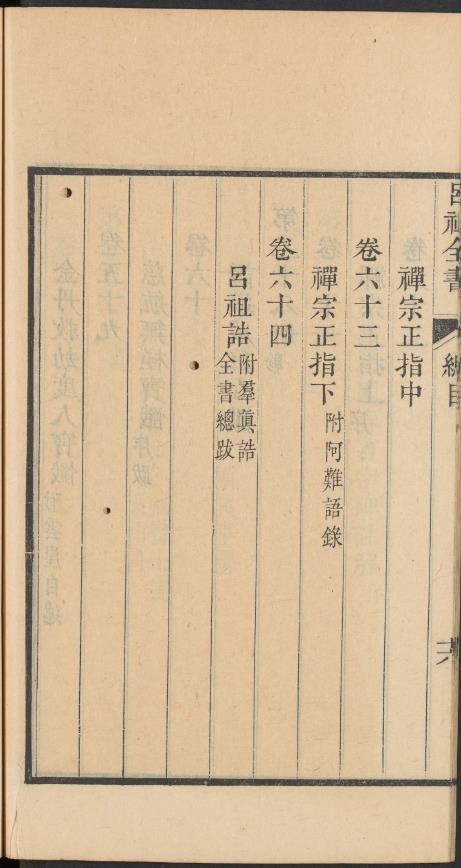 呂祖全書
總目
十六
禪宗正指中
卷六十三
禪宗正指下 附阿難語錄
卷六十四
呂祖誥 附羣真誥
全書總跋